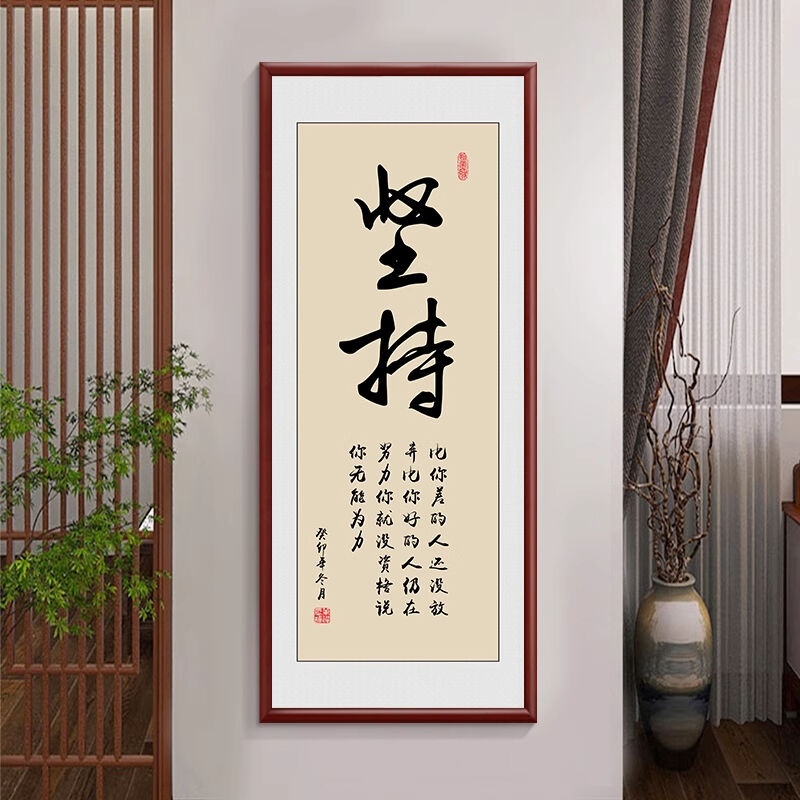 坚持
比你差的人还没放
弃比你好的人仍在
努力你就没资格说
你无能为力
癸卯年冬月